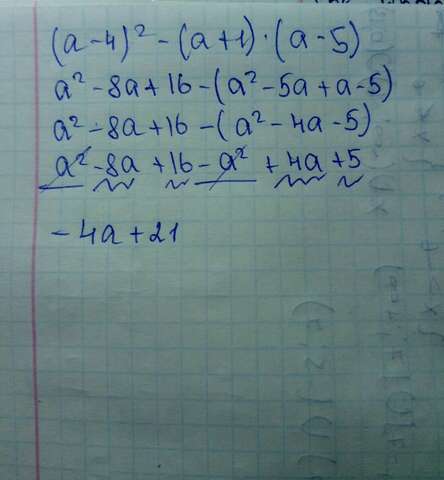 (a-4)² - (a+1)·(a-5)
a² - 8a + 16 - (a² - 5a + a - 5)
a² - 8a + 16 - (a² - 4a - 5)
a² - 8a + 16 - a² + 4a + 5
- 4a + 21